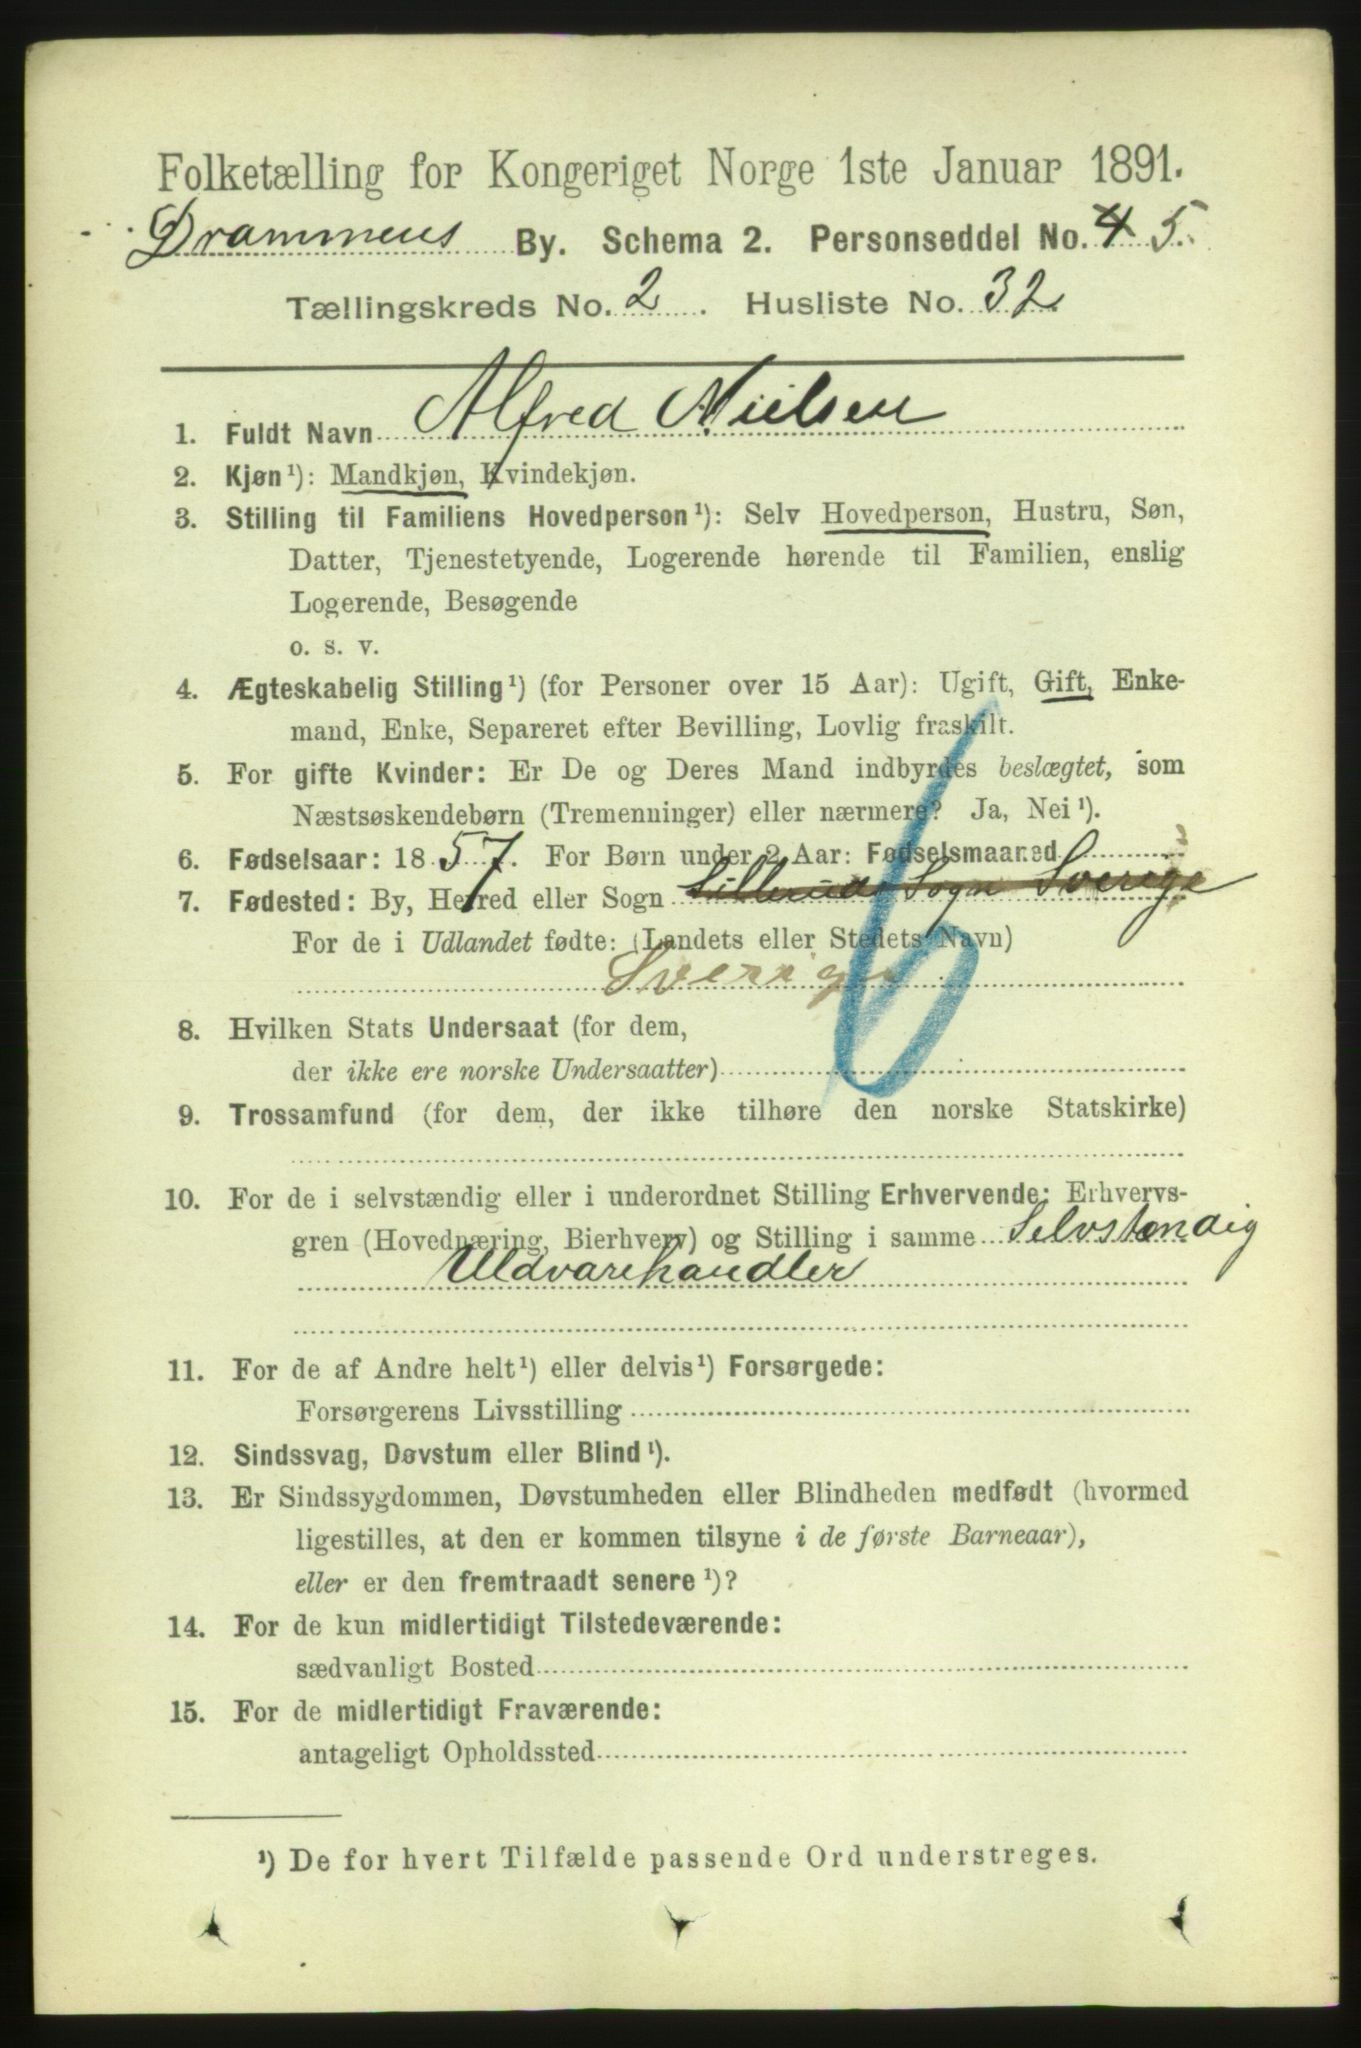 Folketælling for Kongeriget Norge 1ste Januar 1891.
Drammens By. Schema 2. Personseddel No. 4 5.
Tællingskreds No. 2. Husliste No. 32
1. Fuldt Navn Alfred Nielsen
2. Kjøn¹): Mandkjøn, Kvindekjøn.
3. Stilling til Familiens Hovedperson¹): Selv Hovedperson, Hustru, Søn,
Datter, Tjenestetyende, Logerende hørende til Familien, enslig
Logerende, Besøgende
o. s. v.
4. Ægteskabelig Stilling¹) (for Personer over 15 Aar): Ugift, Gift, Enke-
mand, Enke, Separeret efter Bevilling, Lovlig fraskilt.
5. For gifte Kvinder: Er De og Deres Mand indbyrdes beslægtet, som
Næstsøskendebørn (Tremenninger) eller nærmere? Ja, Nei¹).
6. Fødselsaar: 1857. For Børn under 2 Aar: Fødselsmaaned
7. Fødested: By, Herred eller Sogn Silleruds Sogn Sverige
For de i Udlandet fødte: (Landets eller Stedets Navn)
Sverige
6
8. Hvilken Stats Undersaat (for dem,
der ikke ere norske Undersaatter)
9. Trossamfund (for dem, der ikke tilhøre den norske Statskirke)
10. For de i selvstændig eller i underordnet Stilling Erhvervende: Erhvervs-
gren (Hovednæring, Bierhverv) og Stilling i samme Selvstændig
Uldvarehandler
11. For de af Andre helt¹) eller delvis¹) Forsørgede:
Forsørgerens Livsstilling
12. Sindssvag, Døvstum eller Blind¹).
13. Er Sindssygdommen, Døvstumheden eller Blindheden medfødt (hvormed
ligestilles, at den er kommen tilsyne i de første Barneaar),
eller er den fremtraadt senere¹)?
14. For de kun midlertidigt Tilstedeværende:
sædvanligt Bosted
15. For de midlertidigt Fraværende:
antageligt Opholdssted
¹) De for hvert Tilfælde passende Ord understreges.